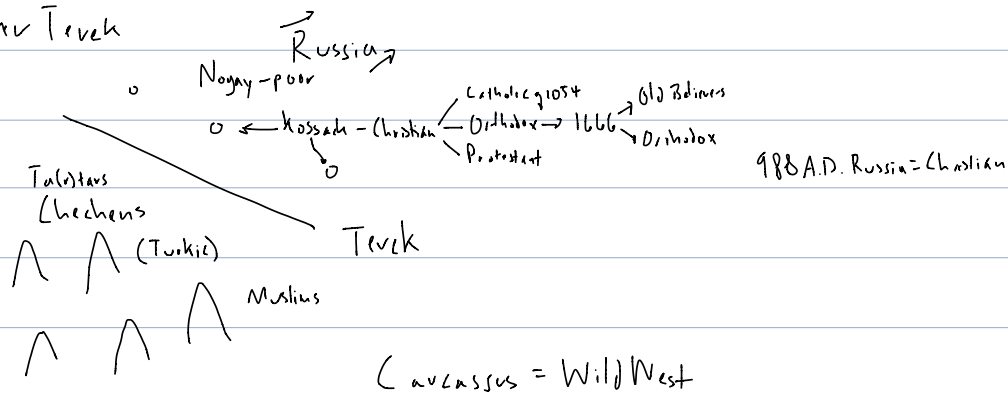 Terek
Russia
Nogay-poor
Kossack - Christian
Catholic 1054
Orthodox → 1666
Protestant
Old Believers
Orthodox
988 A.D. Russia = Christian
Ta(r)tars
Chechens
(Turkic)
Terek
Muslims
Caucassus = Wild West